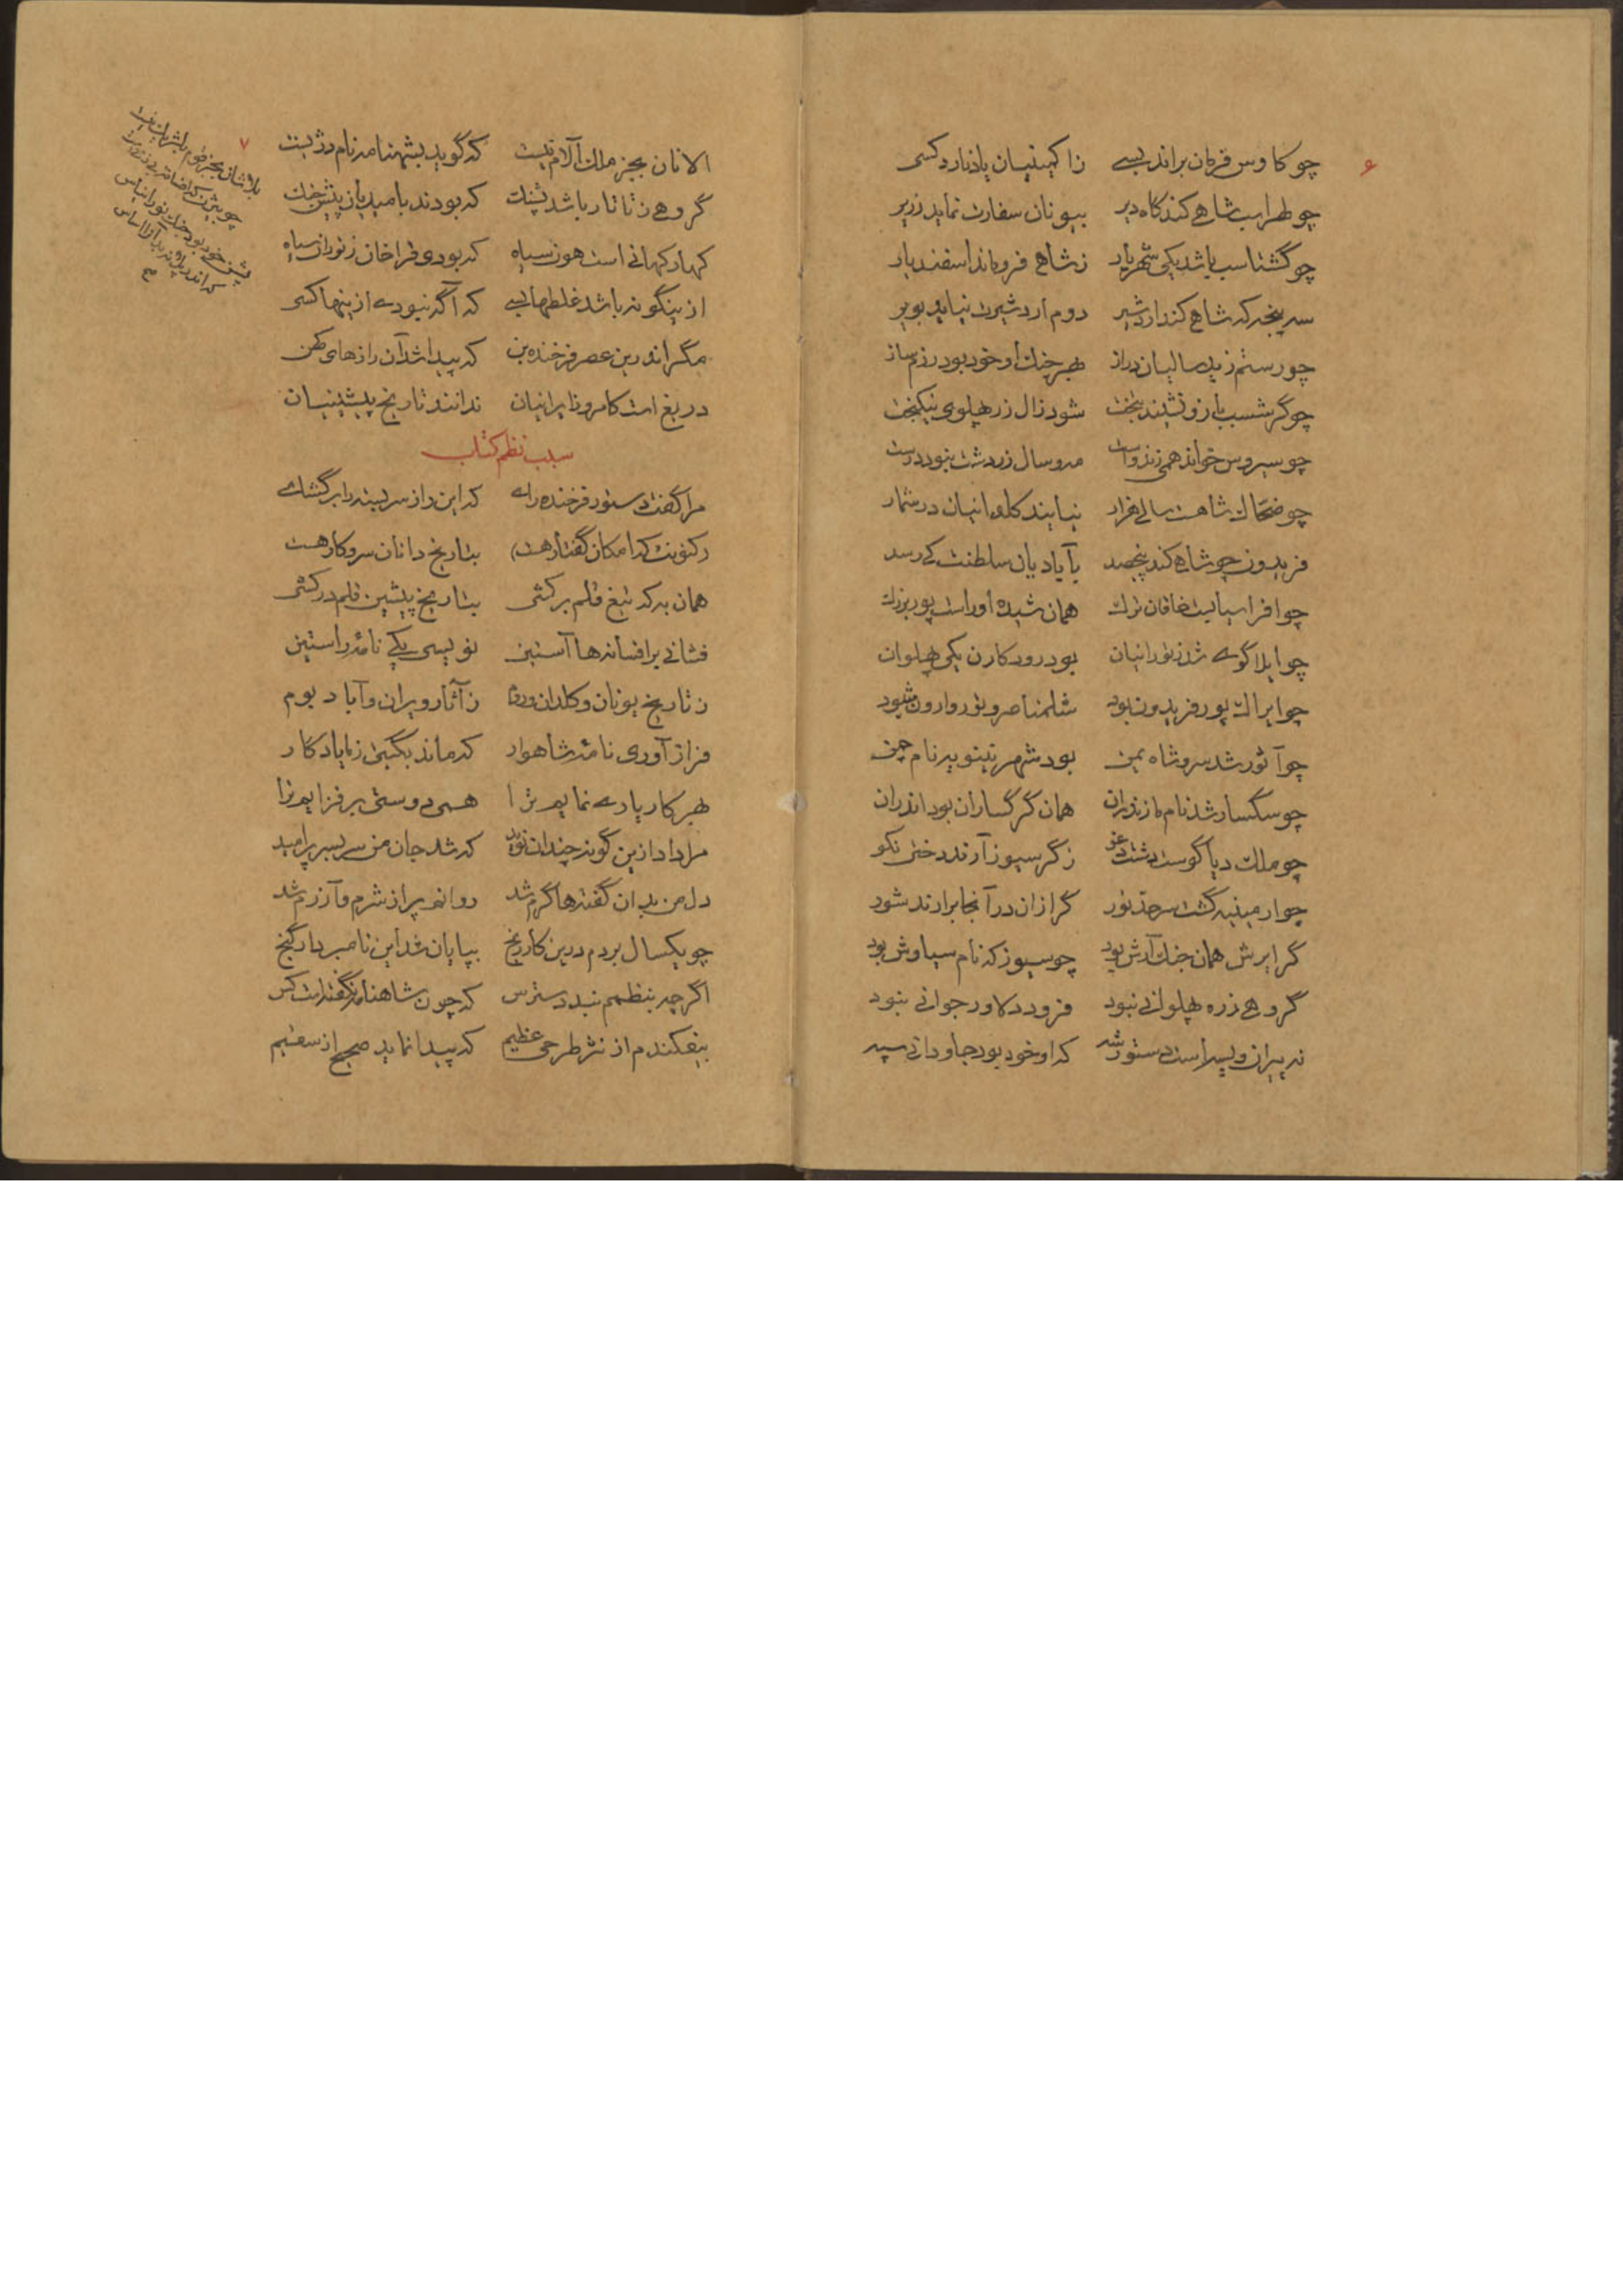 ۶
چو کاوس فرمان براند بسے زاکمینیان یاد نارد کسی
چو لهراسب شاهے کند گاه دیر بیونان سفارت نماید زریر
چو گشتاسب باشد یکی شهریار ز شاهے فروماند اسفندیار
سه پنجه که شاهے کند اردشیر دوم اردشیرت نیاید بویر
چو رستم زید سالیان دراز بهر جنگ او خود بود رزم ساز
چو گرشسب با رزو نشیند بتخت شود زال زر پهلوی نیکبخت
چو سیروس خواند همی زند واست مه و سال زردشت نبود درست
چو ضحاک شاهست سالے هزار نیایند کلدانیان در شمار
فریدون چو شاهے کند پنجصد بآبادیان سلطنت کے رسد
چو افراسیابست خاقان ترک همان شیده او راست پور بزرک
چو ایلاگوے شد ز تورانیان بود رود کارن یکی پهلوان
چو ایراک پور فریدون بود شلمناصر و تور وارون شود
چو آثور شد سرو شاه یمن بود شهر نینوے بر نام من
چو سگسار شد نام مازندران همان گرگساران بود اندران
چو ملک دیاگوست دشت دغو ز گرسیوز آرند دختی نکو
چو ارمینیه گشت سرحد تور گرازان در آنجا برارند شور
گرایرش همان جنگ آرش بود چو سیوزکه نام سیاوش بود
گروهے زره پهلوانی نبود فرود دلاور جوانی نبود
نه پیران ویسه است دستور شه که او خود بود جاودانی سپه
۷
الانان بجز ملک آلام نیست که گوید بشهنامه نام دژ بست
گروهے ز تاتار باشد پشنگ که بودند بامیدیان پیش جنگ
کهار کهانی است هون سیاه که بودی قراخان ز توران سپاه
ازینگونه باشد غلطها بسے که آگه نبودے ازینها کسی
مگر اندرین عصر فرخنده بن که پیدا شد آن رازهای کهن
دریغ است کامروز ایرانیان ندانند تاریخ پیشینیان
سبب نظم کتاب
مرا گفت دستور فرخنده رای که این راز سربسته را برگشاے
(کنونت که امکان گفتار هست) بتاریخ دانان سر و کار هست
همان به که تیغ قلم برکشی بتاریخ پیشین قلم درکشی
فشانی بر افسانه ها آستین نویسی یکے نامهٔ راستین
ز تاریخ یونان و کلدان و روم ز آثار ویران و آباد بوم
فراز آوری نامهٔ شاهوار که ماند بگیتی ز ما یادگار
بهر کار یارے نمایم ترا همی دوستی برفزایم ترا
مرا داد ازین گونه چندان نوید که شد جان من سربسر پر امید
دل من بدان گفته ها گرم شد روانم پر از شرم و آزرم شد
چو یکسال بردم درین کار رنج بپایان شد این نامبردار گنج
اگرچه بنظمم نبد دسترس که چون شاهنامه نگفته است کس
بیفکندم از نثر طرحی عظیم که پیدا نماید صحیح از سقیم
بلاشان بجز خرم
چو بیژن که
پشن خود بود جنگ تورانیاس
که اندر پلاته بد